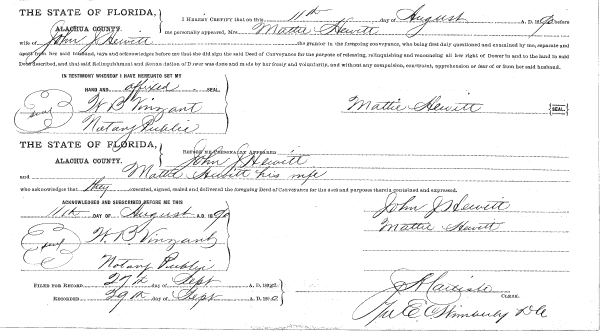 THE STATE OF FLORIDA,
ALACHUA COUNTY.
I HEREBY CERTIFY that on this 11th day of August A. D. 1890 before
me personally appeared, Mrs. Mattie Hewitt
wife of John J Hewitt the grantor in the foregoing conveyance, who being first duly questioned and examined by me, separate and
apart from her said husband, says and acknowledges before me that she did sign the said Deed of Conveyance for the purpose of releasing, relinquishing and renouncing all her right of Dower in and to the land in said
Deed described, and that said Relinquishment and Renunciation of Dower was done and made by her freely and voluntarily, and without any compulsion, constraint, apprehension or fear of or from her said husband.
IN TESTIMONY WHEREOF I HAVE HEREUNTO SET MY
HAND AND affixed SEAL.
seal
W. B Vinzant
Notary Public
Mattie Hewitt
SEAL.
THE STATE OF FLORIDA,
ALACHUA COUNTY.
BEFORE ME PERSONALLY APPEARED John J Hewitt
and Mattie Hewitt his wife
who acknowledge that they executed, signed, sealed and delivered the foregoing Deed of Conveyance for the uses and purposes therein contained and expressed.
ACKNOWLEDGED AND SUBSCRIBED BEFORE ME THIS
11th DAY OF August A. D. 1890
seal
W. B. Vinzant
Notary Public
John J Hewitt
Mattie Hewitt
FILED FOR RECORD 27th day of Sept A. D. 1890
RECORDED 29th day of Sept A. D. 1890
CLERK.
Per E DC